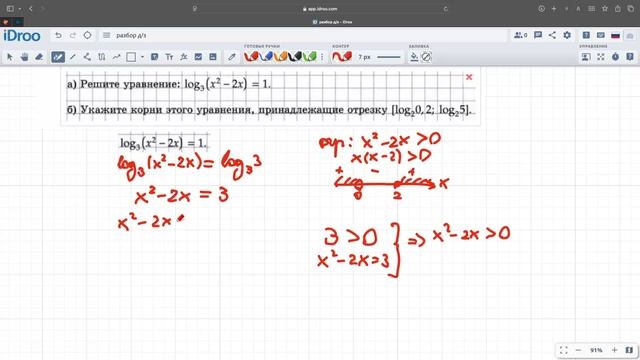 app.idroo.com
разбор д/з - iDroo
iDroo
разбор д/з
0
ГОТОВЫЕ РУЧКИ
КРИВАЯ
7 px
ВСТАВИТЬ
УПРАВЛЕНИЕ
а) Решите уравнение: log₃(x² − 2x) = 1.
б) Укажите корни этого уравнения, принадлежащие отрезку [log₂0,2; log₂5].
log₃(x² − 2x) = 1.
log₃(x²−2x) = log₃3
x²−2x = 3
x²−2x
огр: x²−2x>0
x(x−2)>0
+ − +
0 2 x
3>0
x²−2x=3
} => x²−2x>0
91%